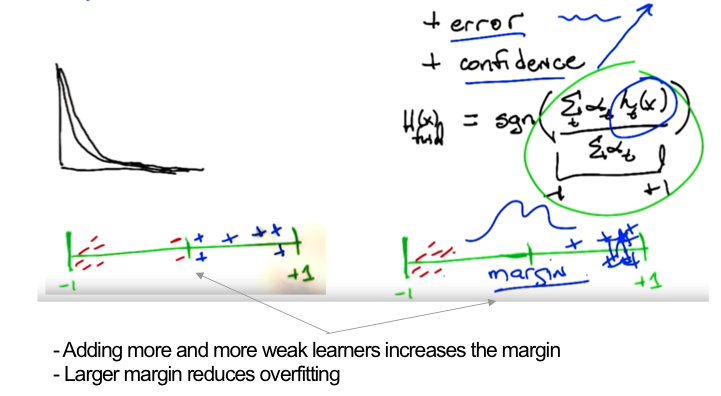 + error
+ confidence
H(x) final = sgn( Σ_t α_t h_t(x) / Σ_t α_t )
-1 +1
-1 +1
margin
-1 +1
- Adding more and more weak learners increases the margin
- Larger margin reduces overfitting